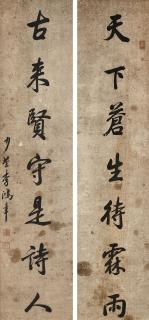 天下蒼生待霖雨
古来賢守是詩人
少荃李鴻章